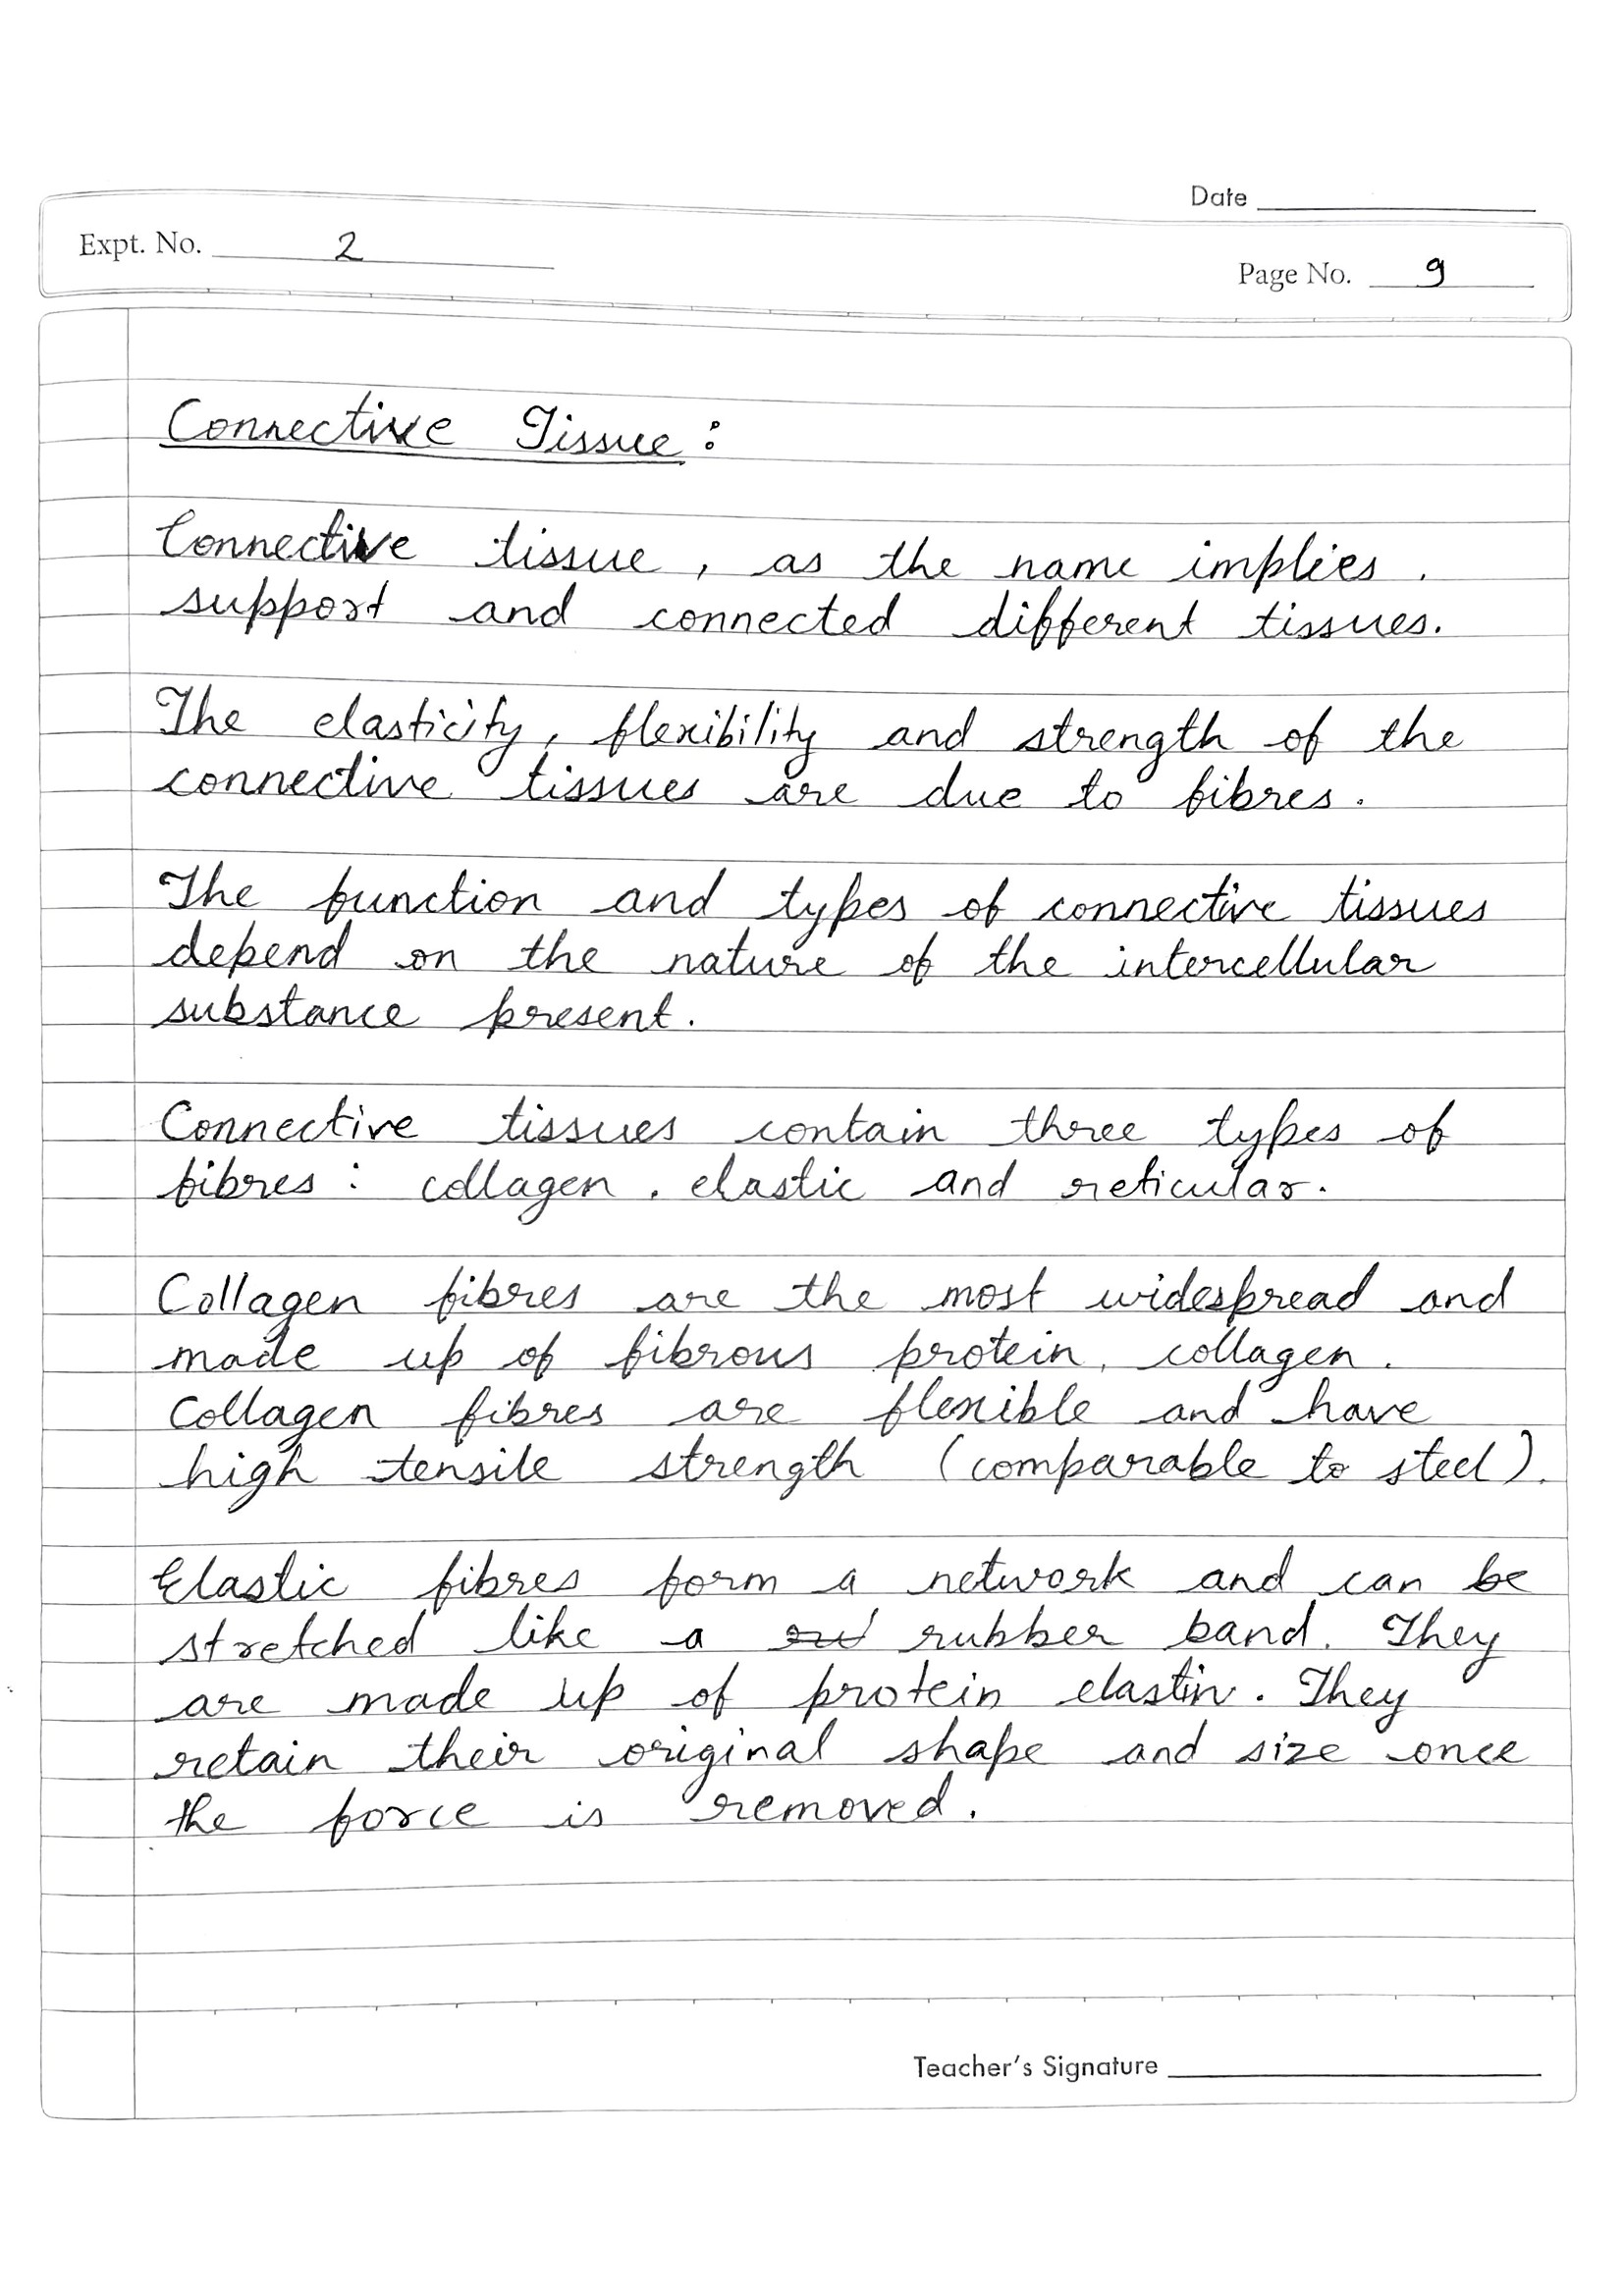 Date
Expt. No. 2
Page No. 9
Connective Tissue :
Connective tissue, as the name implies.
support and connected different tissues.
The elasticity, flexibility and strength of the
connective tissues are due to fibres.
The function and types of connective tissues
depend on the nature of the intercellular
substance present.
Connective tissues contain three types of
fibres : collagen, elastic and reticular.
Collagen fibres are the most widespread and
made up of fibrous protein, collagen.
Collagen fibres are flexible and have
high tensile strength (comparable to steel).
Elastic fibres form a network and can be
stretched like a rubber band. They
are made up of protein elastin. They
retain their original shape and size once
the force is removed.
Teacher's Signature